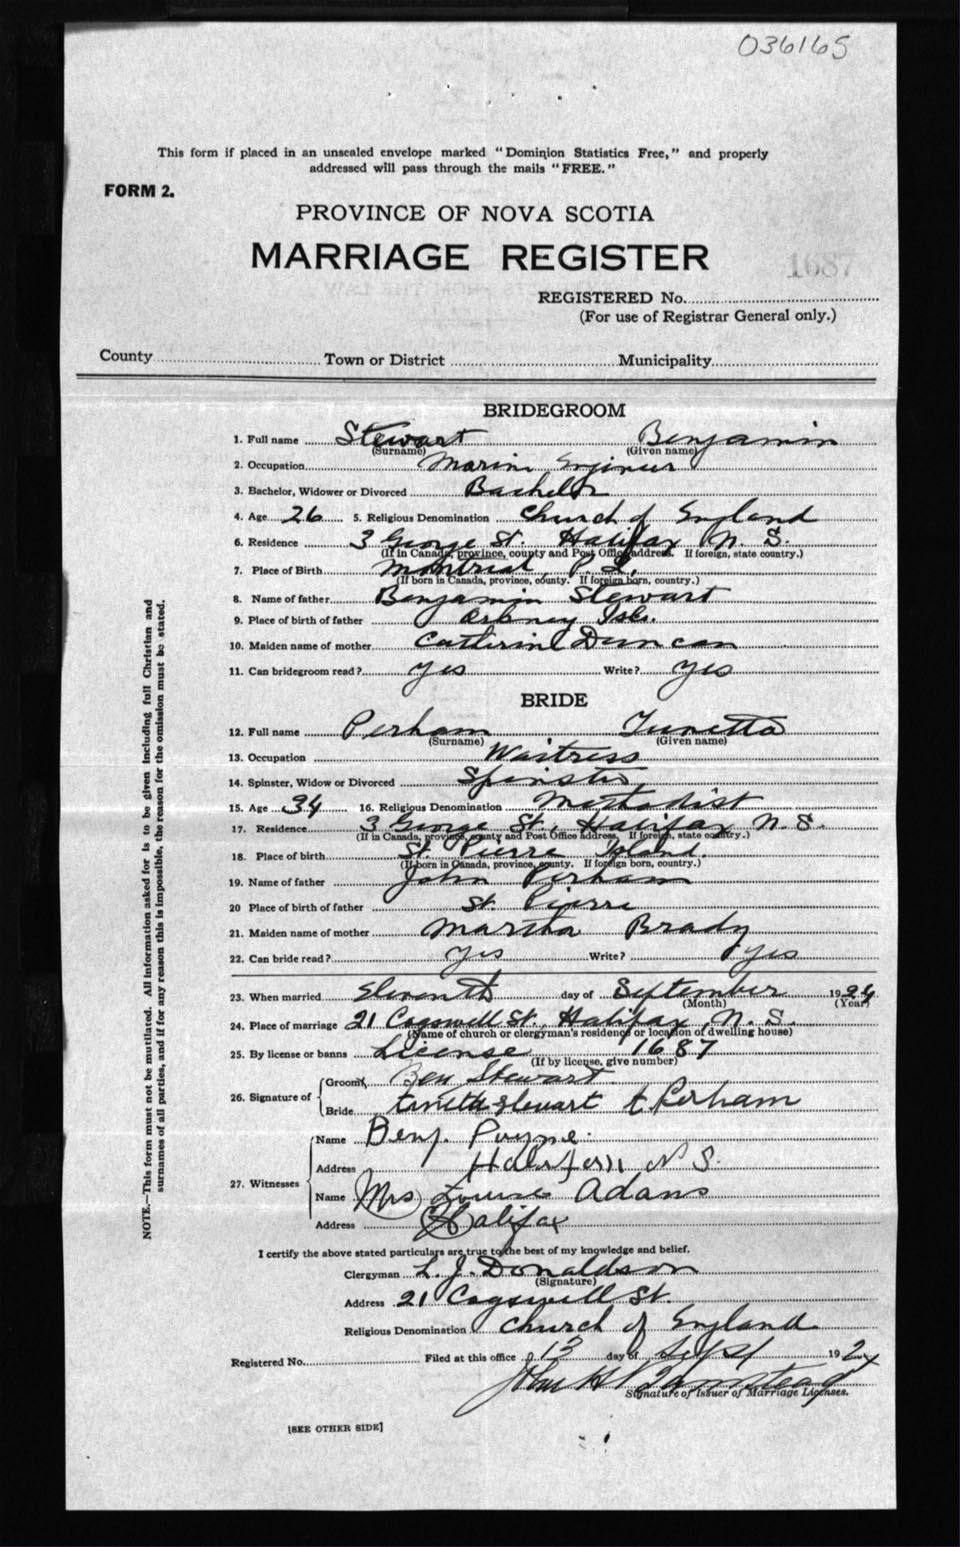 036165
This form if placed in an unsealed envelope marked "Dominion Statistics Free," and properly
addressed will pass through the mails "FREE."
FORM 2.
PROVINCE OF NOVA SCOTIA
MARRIAGE REGISTER
1687
REGISTERED No.
(For use of Registrar General only.)
County Town or District Municipality
BRIDEGROOM
1. Full name Stewart Benjamin
(Surname) (Given name)
2. Occupation Marine Engineer
3. Bachelor, Widower or Divorced Bachelor
4. Age 26 5. Religious Denomination Church of England
6. Residence 3 George St. Halifax N. S.
(If in Canada, province, county and Post Office address. If foreign, state country.)
7. Place of Birth Montreal,
(If born in Canada, province, county. If foreign born, country.)
8. Name of father Benjamin Stewart
9. Place of birth of father Orkney Isls.
10. Maiden name of mother Catherine Duncan
11. Can bridegroom read? Yes Write? Yes
BRIDE
12. Full name Perham
(Surname) (Given name)
13. Occupation Waitress
14. Spinster, Widow or Divorced Spinster
15. Age 34 16. Religious Denomination Methodist
17. Residence 3 George St., Halifax N. S.
(If in Canada, province, county and Post Office address. If foreign, state country.)
18. Place of birth St. Pierre Island.
(If born in Canada, province, county. If foreign born, country.)
19. Name of father John Perham
20 Place of birth of father St. Pierre
21. Maiden name of mother Martha Brady
22. Can bride read? Yes Write? Yes
23. When married Eleventh day of September 1924
(Month) (Year)
24. Place of marriage 21 Cogswell St., Halifax, N. S.
(Name of church or clergyman's residence or location of dwelling house)
25. By license or banns License 1687
(If by license, give number)
26. Signature of
Groom Ben Stewart
Bride Stewart t. Perham
27. Witnesses
Name Benj. Payne.
Address Halifax N S.
Name Mrs Louise Adams
Address Halifax
I certify the above stated particulars are true to the best of my knowledge and belief.
Clergyman L. J. Donaldson
(Signature)
Address 21 Cogswell St.
Religious Denomination Church of England
Registered No. Filed at this office 13 day of Sept 1924
John H
Signature of Issuer of Marriage Licenses.
[SEE OTHER SIDE]
NOTE.—This form must not be mutilated. All information asked for is to be given including full Christian and
surnames of all parties, and if for any reason this is impossible, the reason for the omission must be stated.